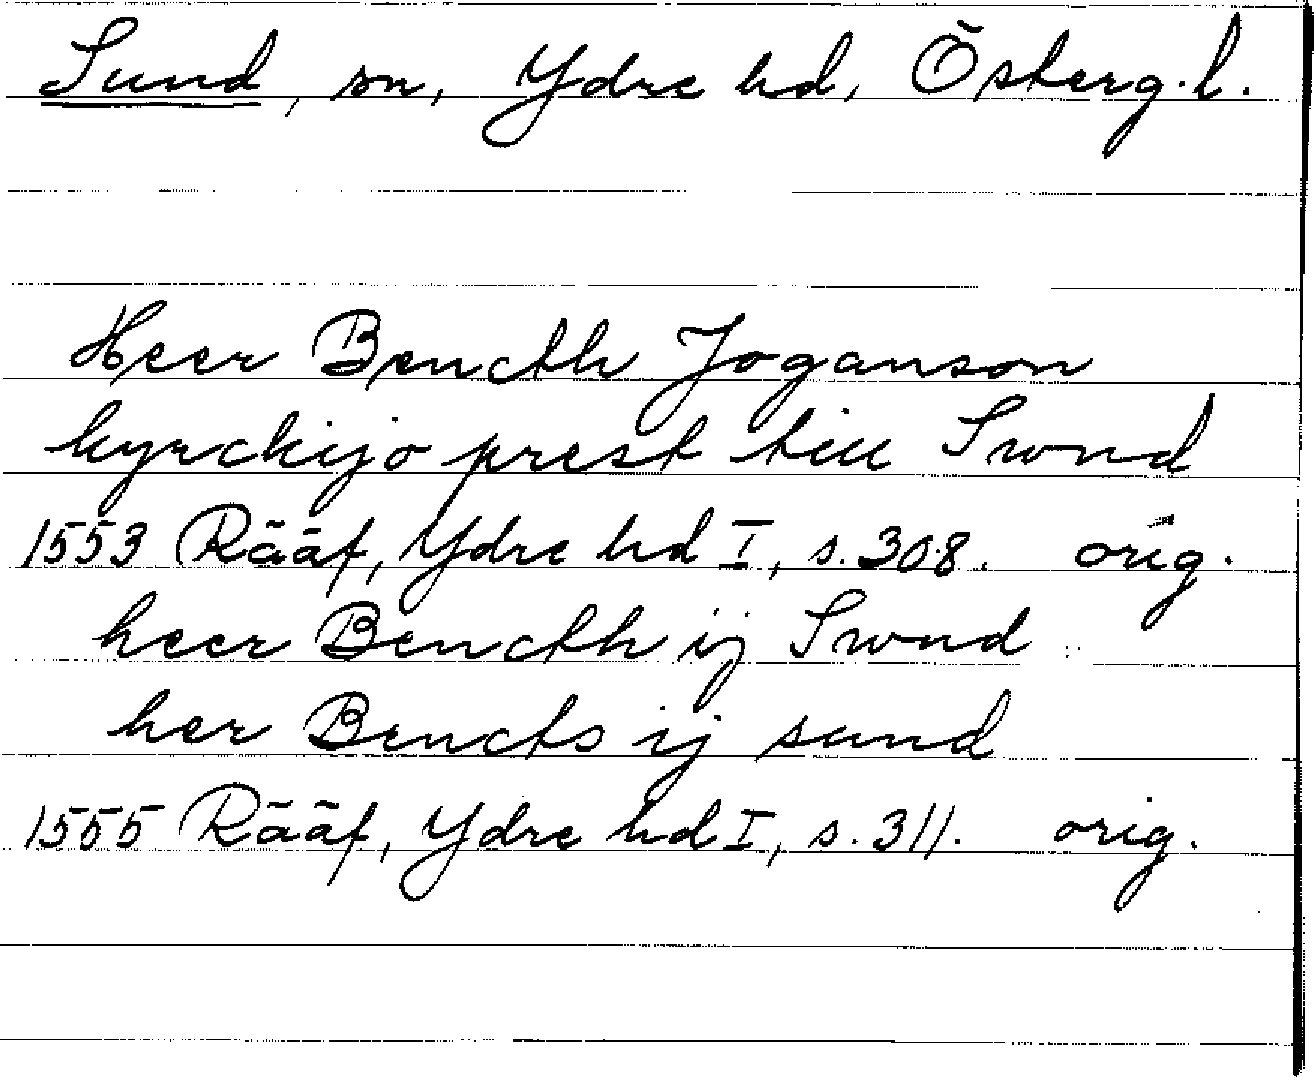 Sund, sn, Ydre hd, Österg.l.
Heer Bencth Joganson
kyrckijo prest till Swnd
1553 Rääf, Ydre hd I, s. 308. orig.
heer Bencth ij Swnd
her Bencts ij sund
1555 Rääf, Ydre hd I, s. 311. orig.